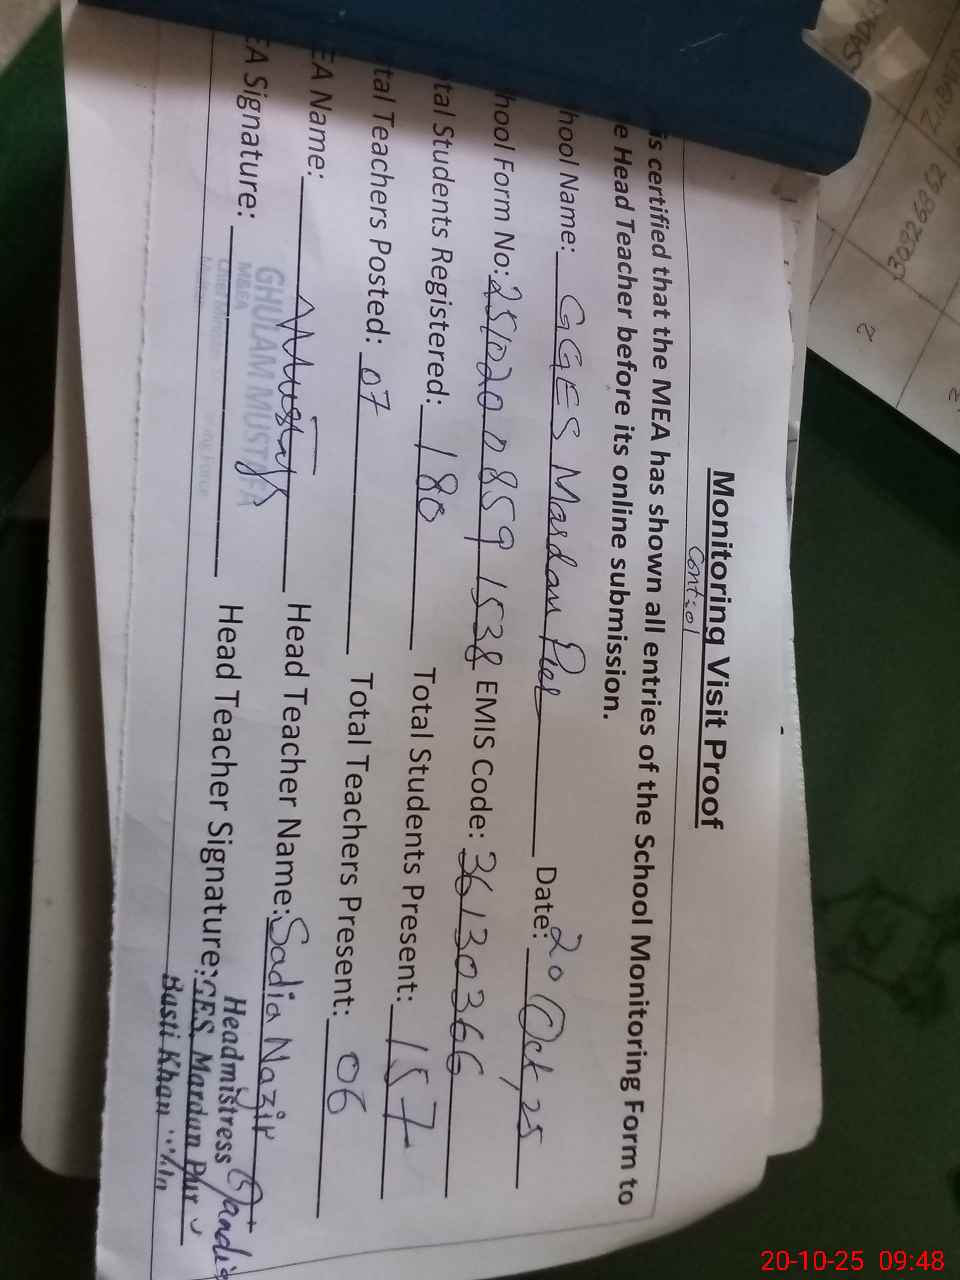 Monitoring Visit Proof
Control
is certified that the MEA has shown all entries of the School Monitoring Form to
e Head Teacher before its online submission.
hool Name: GGES Mardan Pur Date: 20 Oct, 25
hool Form No: 25102008591538 EMIS Code: 36130366
tal Students Registered: 180 Total Students Present: 157
tal Teachers Posted: 07 Total Teachers Present: 06
EA Name: Head Teacher Name: Sadia Nazir
EA Signature: Head Teacher Signature:
GHULAM MUSTAFA
M&EA
Headmistress
GES Mardan Pur
Basti Khan
30326862
2
20-10-25 09:48